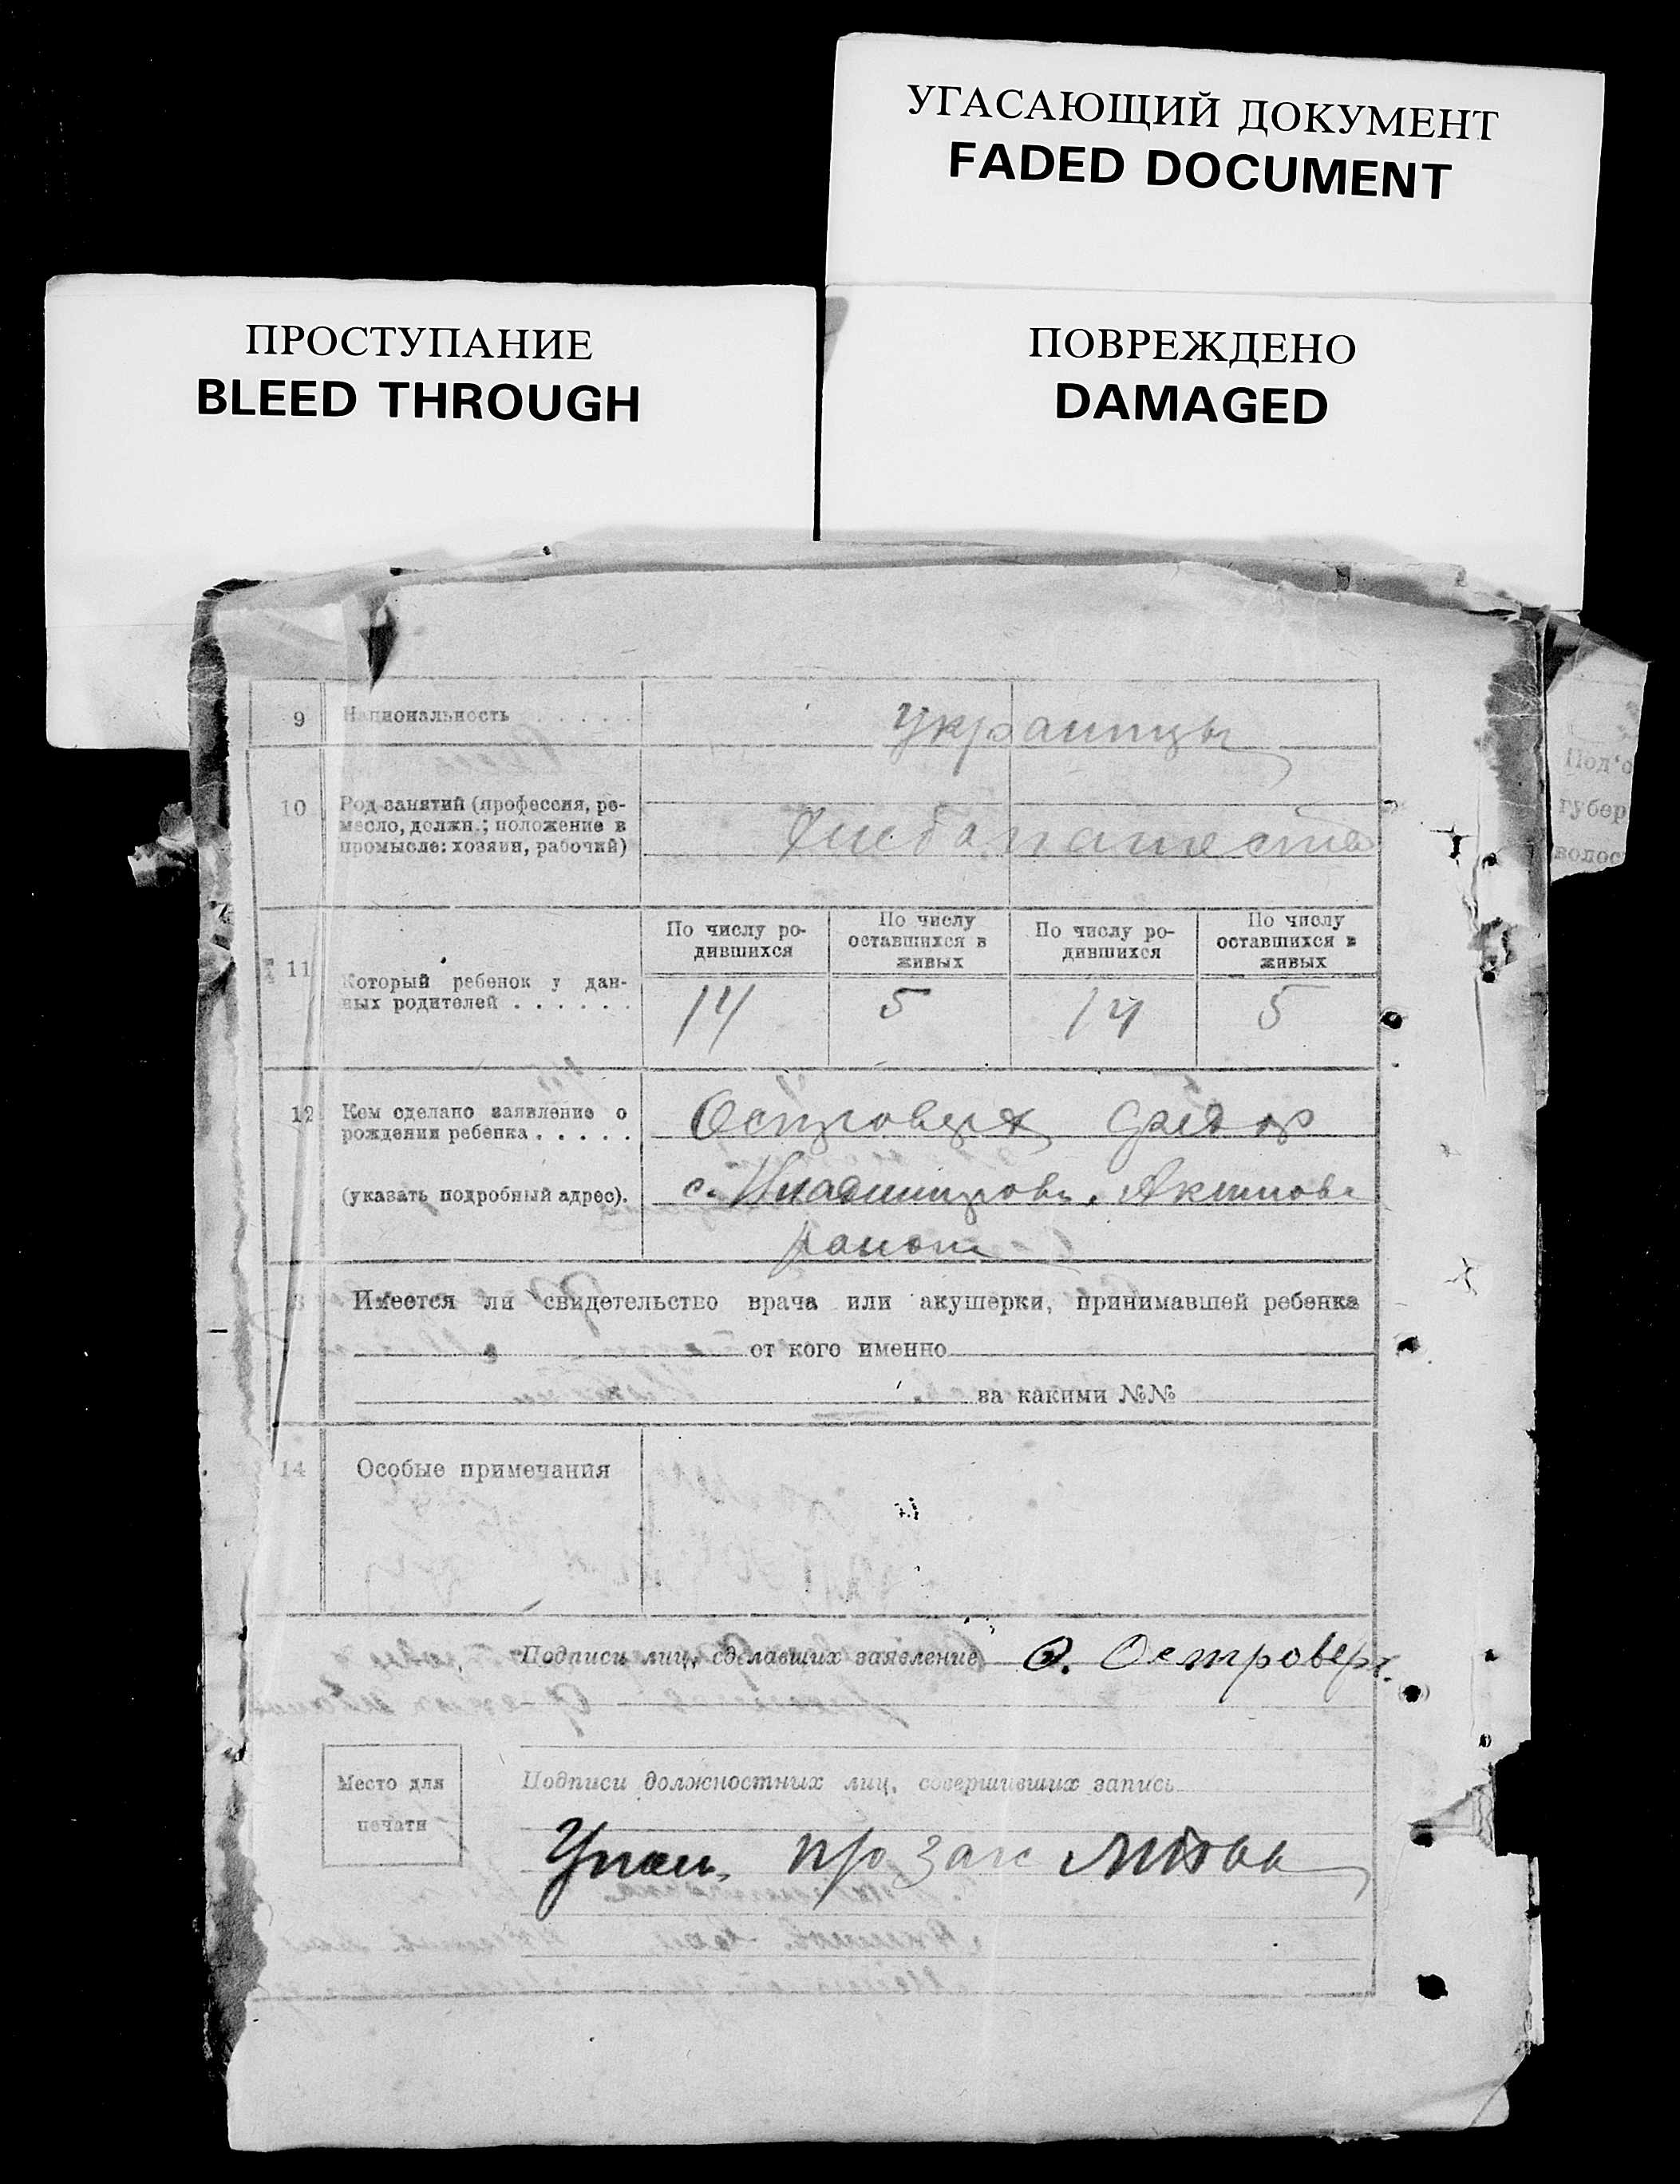 УГАСАЮЩИЙ ДОКУМЕНТ
FADED DOCUMENT
ПРОСТУПАНИЕ
BLEED THROUGH
ПОВРЕЖДЕНО
DAMAGED
9 Национальность . . . . .
Украинцы
10 Род занятий (профессия, ре-
месло, должн.; положение в
промысле: хозяин, рабочий)
Хлебопашество
По числу ро-
дившихся
По числу
оставшихся в
живых
По числу ро-
дившихся
По числу
оставшихся в
живых
11 Который ребенок у дан-
ных родителей . . . . . .
14 5 14 5
12 Кем сделано заявление о
рождении ребенка . . . . .
Островерх Федор
(указать подробный адрес).
с. Владимировк, Акимовс
район
Имеется ли свидетельство врача или акушерки, принимавшей ребенка
от кого именно
за какими №№
14 Особые примечания
Подписи лиц, сделавших заявление Ф. Островерх.
Место для
печати
Подписи должностных лиц, совершивших запись
Под'о
губер
волос